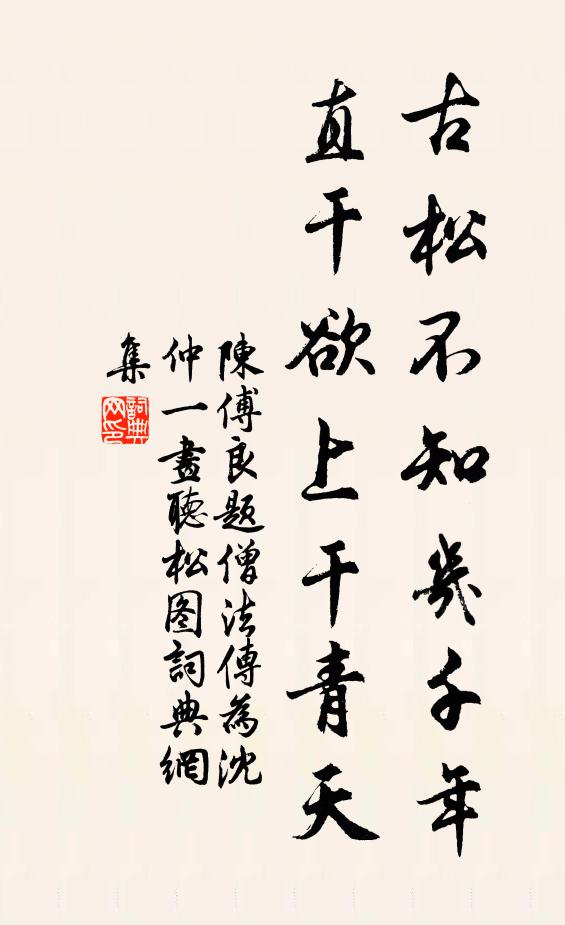 古松不知幾千年
直干欲上干青天
陳傅良題僧法傳為沈
仲一畫聽松圖詞典網
集
詞典網印